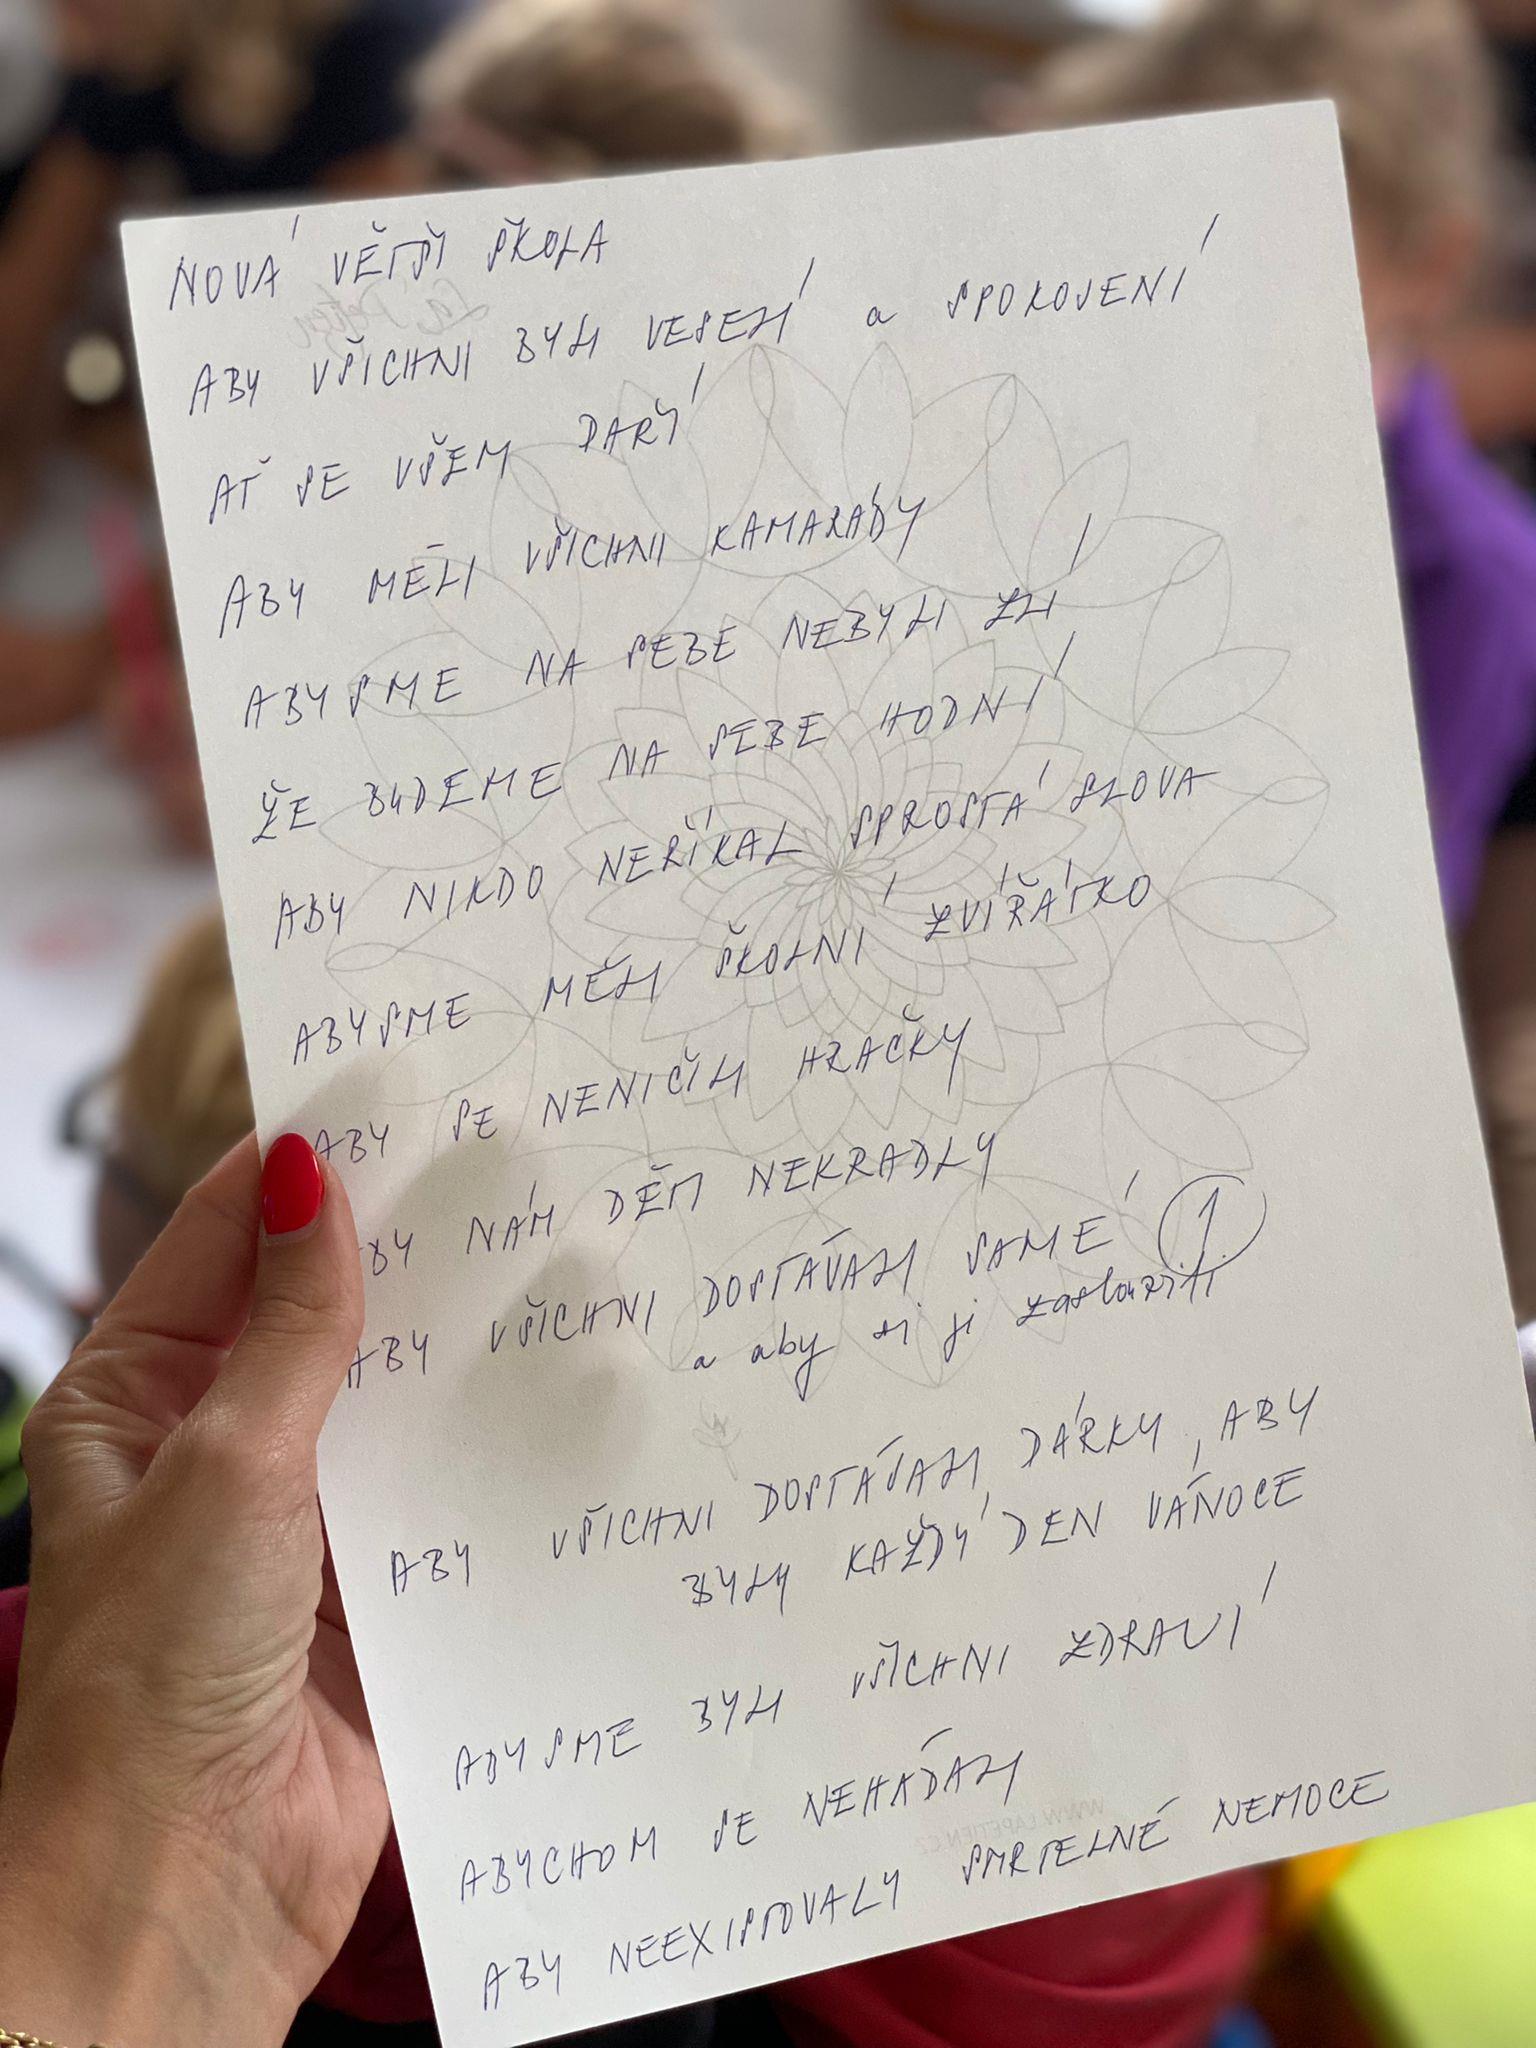 NOVÁ VĚTŠÍ ŠKOLA
ABY VŠICHNI BYLI VESELÍ a SPOKOJENÍ
AŤ SE VŠEM DAŘÍ
ABY MĚLI VŠICHNI KAMARÁDY
ABYSME NA SEBE NEBYLI ZLÍ
ŽE BUDEME NA SEBE HODNÍ
ABY NIKDO NEŘÍKAL SPROSTÁ SLOVA
ABYSME MĚLI ŠKOLNÍ ZVÍŘÁTKO
ABY SE NENIČILY HRAČKY
BY NÁM DĚTI NEKRADLY
ABY VŠICHNI DOSTÁVALI SAMÉ 1
a aby si ji zasloužili
ABY VŠICHNI DOSTÁVALI DÁRKY, ABY
BYLY KAŽDÝ DEN VÁNOCE
ABYSME BYLI VŠICHNI ZDRAVÍ
ABYCHOM SE NEHÁDALI
WWW.LAPETITEN.CZ
ABY NEEXISTOVALY SMRTELNÉ NEMOCE